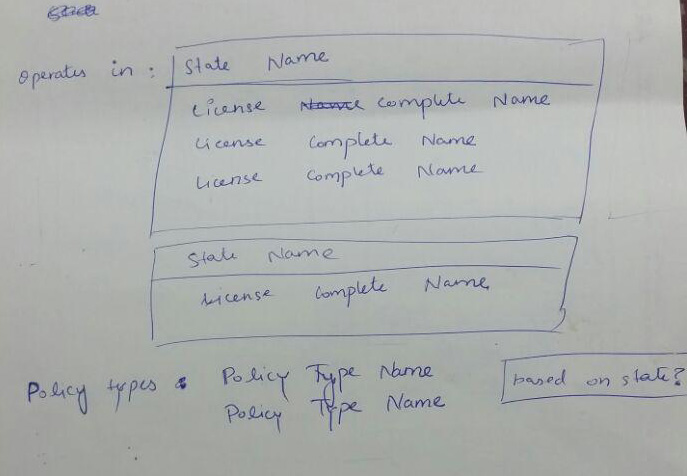 Operates in : State Name
License Complete Name
License Complete Name
License Complete Name
State Name
License Complete Name
Policy types : Policy Type Name
Policy Type Name
based on state?